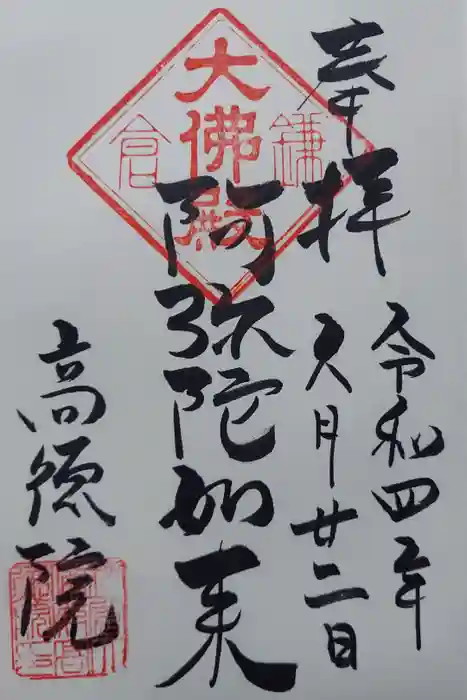 奉拝
令和四年
八月廿二日
大佛殿
鎌倉
阿弥陀如来
高徳院